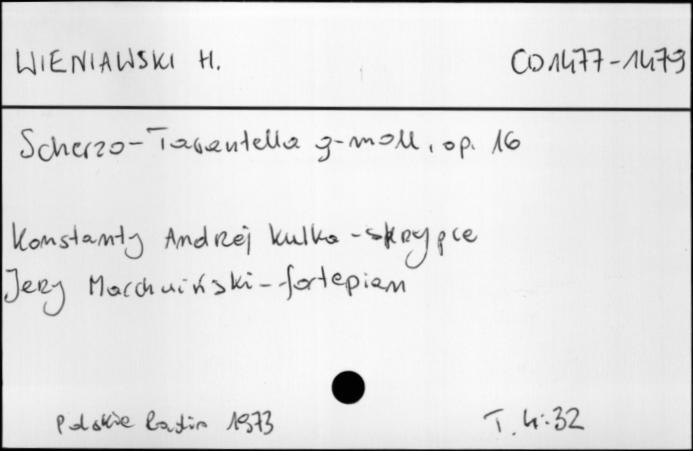 WIENIAWSKI H. CD1477-1479
Scherzo-Tarantella g-moll, op. 16
Konstanty Andrzej Kulka - skrzypce
Jerzy Marchwiński - fortepian
Polskie Radio 1973 T. 4:32